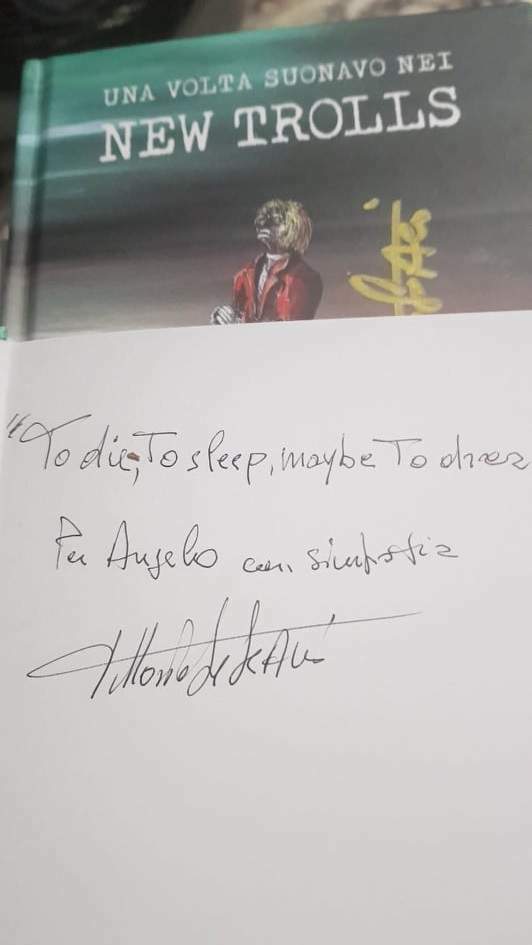 UNA VOLTA SUONAVO NEI
NEW TROLLS
"To die, To sleep, maybe To drea
Per Angelo con simpatia
Vittorio De Scalzi